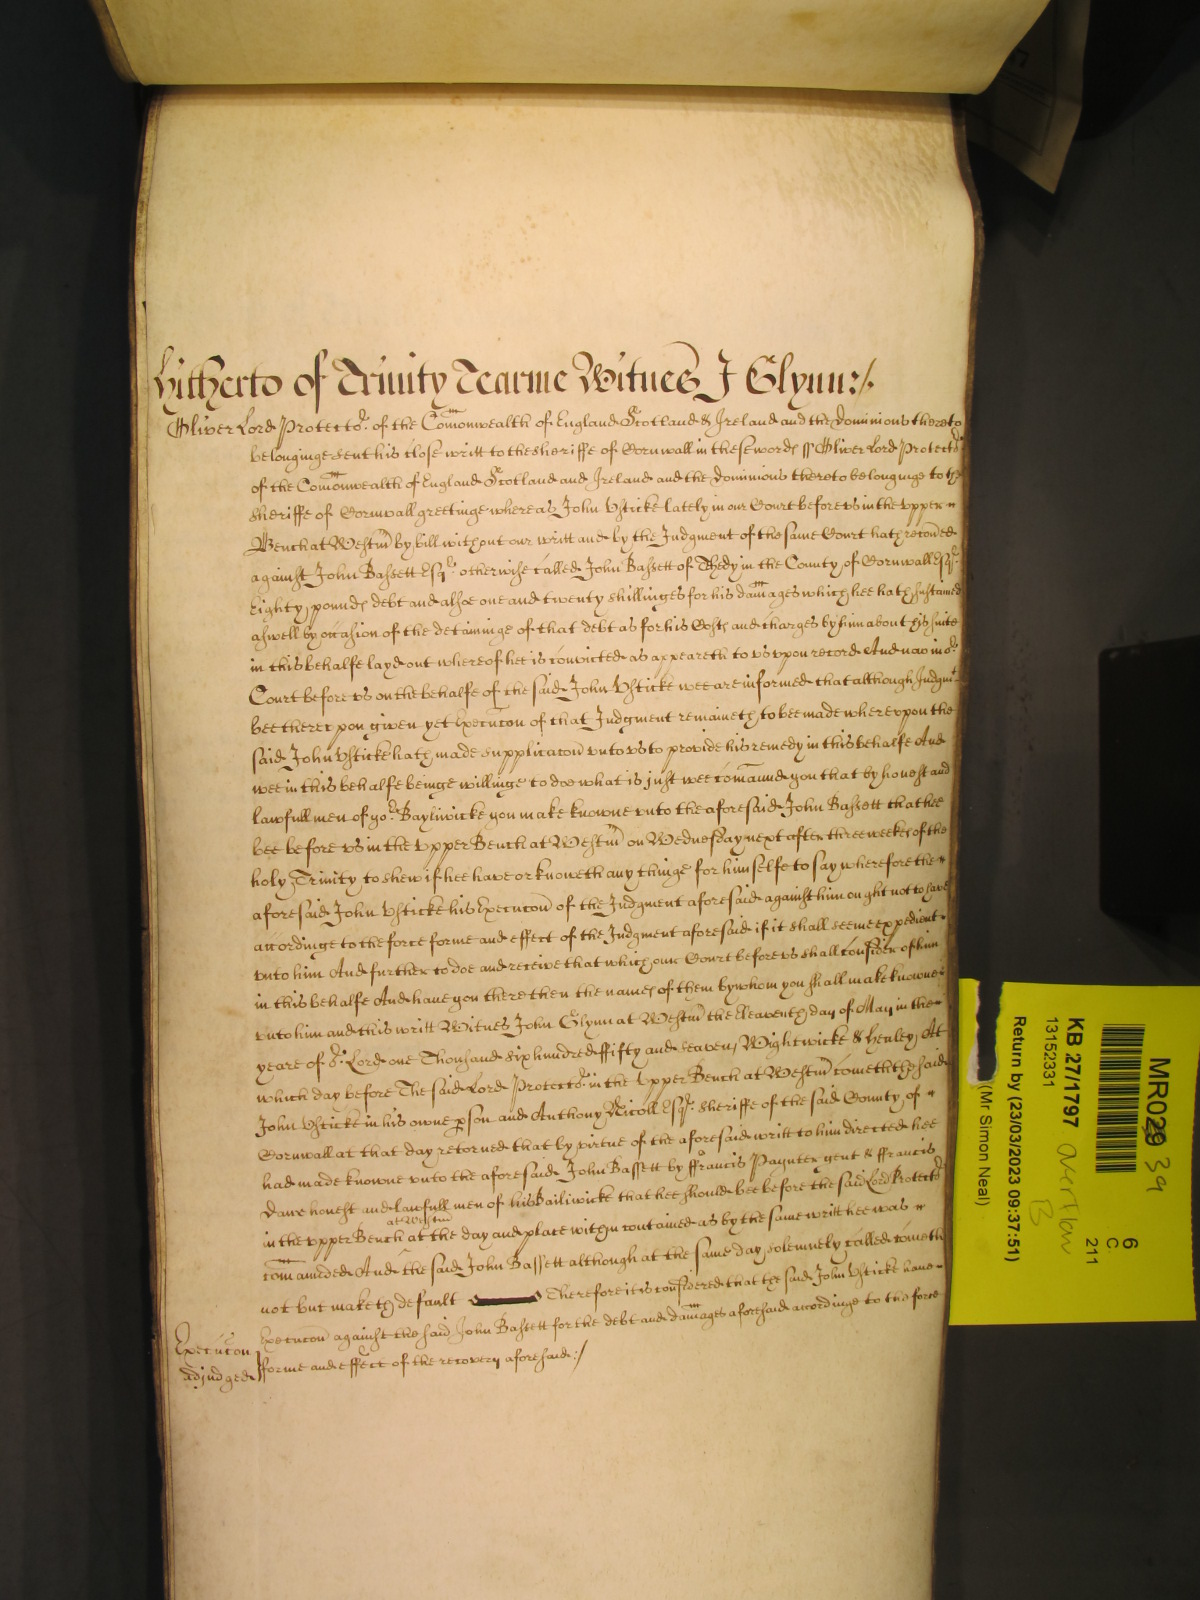 hitherto of Trinity Tearme Witnes J Glynn:/.
Oliver Lord Protector. of the Comonwealth of England Scotland & Ireland and the Dominions thereto
belonginge sent his close writt to the sheriffe of Cornwall in these words ss Oliver Lord Protector
of the Comonwealth of England Scotland and Ireland and the Dominions thereto belonginge to the
sheriffe of Cornwall greetinge whereas John Vsticke lately in our Court before vs in the vpper
Bench at Westm by bill without our writt and by the Judgment of the same Court hath recoued
against John Bassett Esqr. otherwise called John Bassett of Thedy in the County of Cornwall Esqr.
Eighty pounds debt and alsoe one and twenty shillinges for his damages which hee hath sustained
aswell by occasion of the detaininge of that debt as for his Costs and charges by him about his suite
in this behalfe layd out whereof hee is convicted as appeareth to vs vpon record And now in or.
Court before vs on the behalfe of the said John Vsticke wee are informed that although Judgmt.
bee therevpon given yet Execucon of that Judgment remaineth to bee made wherevpon the
said John Vsticke hath made supplicacon vnto vs to provide his remedy in this behalfe And
wee in this behalfe beinge willinge to doe what is just wee comaund you that by honest and
lawfull men of yor. Bayliwicke you make knowne vnto the aforesaid John Bassett that hee
bee before vs in the vpper Bench at Westm on Wednesday next after three weekes of the
holy Trinity to shew if hee have or knoweth any thinge for himselfe to say wherefore the
aforesaid John Vsticke his Execucon of the Judgment aforesaid against him ought not to have
accordinge to the force forme and effect of the Judgment aforesaid if it shall seeme expedient
vnto him And further to doe and receive that which our Court before vs shall consider of him
in this behalfe And haue you there then the names of them by whom you shall make knowne
vnto him and this writt Witnes John Glynn at Westm the Eleaventh day of May in the
yeare of or. Lord one Thousand six hundred ffifty and seaven, Wightwicke & Healey, At
which day before The said Lord Protector. in the Vpper Bench at Westm cometh the said
John Vsticke in his owne pson and Anthony Nicoll Esqr. sheriffe of the said County of
Cornwall at that day retorned that by virtue of the aforesaid writt to him directed hee
had made knowne vnto the aforesaid John Bassett by ffrancis Paynter gent & ffrancis
Dawe honest and lawfull men of his Bailiwicke that hee should bee before the said Lord Protector
in the vpper Bench at Westm at the day and place within contained as by the same writt hee was
comainded And the said John Bassett although at the same day solemnely called cometh
not but maketh default Therefore it is considered that the said John Vsticke haue
Execucon adjudged
Execucon against the said John Bassett for the debt and damages aforesaid accordinge to the force
forme and effect of the recovery aforesaid:/
MR029 39
6
C
211
KB 27/1797 overflow B
13152331
Return by (23/03/2023 09:37:51)
(Mr Simon Neal)